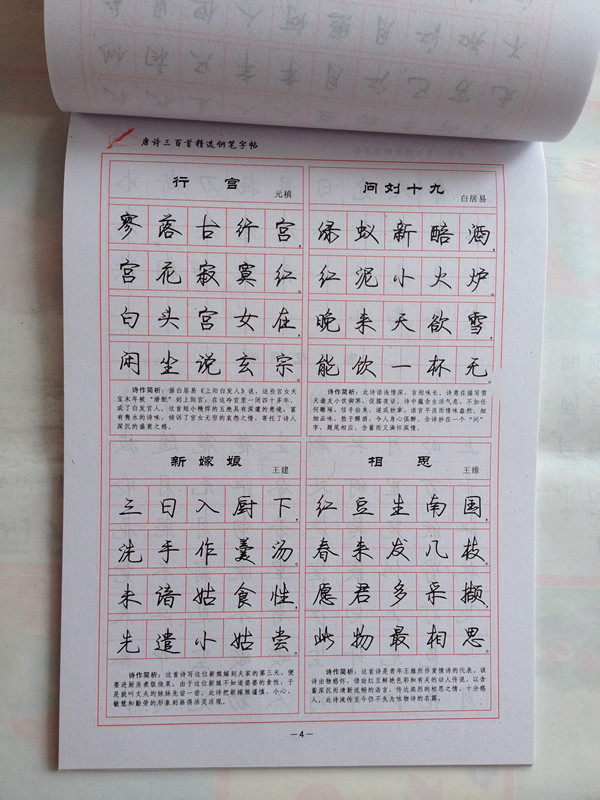 唐诗三百首精选钢笔字帖
行宫
元稹
寥落古行宫，
宫花寂寞红。
白头宫女在，
闲坐说玄宗。
诗作简析：据白居易《上阳白发人》说，这些宫女天
宝末年被“潜配”到上阳宫，在这冷宫里一闭四十多年，
成了白发宫人。这首短小精悍的五绝具有深邃的意境，富
有隽永的诗味，倾诉了宫女无穷的哀怨之情，寄托了诗人
深沉的盛衰之感。
问刘十九
白居易
绿蚁新醅酒，
红泥小火炉。
晚来天欲雪，
能饮一杯无。
诗作简析：此诗语浅情深，言短味长。诗意在描写雪
天邀友小饮御寒，促膝夜话。诗中蕴含生活气息，不加任
何雕琢，信手拈来，遂成妙章。语言平淡而情味盎然。细
细品味，胜于醇酒，令人身心俱醉。全诗妙在一个“问”
字，题尾相应，含蓄而又满怀深情。
新嫁娘
王建
三日入厨下，
洗手作羹汤。
未谙姑食性，
先遣小姑尝。
诗作简析：这首诗写这位新娘嫁到夫家的第三天，便
要进厨房煮饭烧菜。由于这位新娘不知道婆婆的食性，于
是就叫丈夫的妹妹先尝一尝。此诗把新娘谨慎、小心、
敏慧和勤劳的形象刻画得活灵活现。
相思
王维
红豆生南国，
春来发几枝
愿君多采撷，
此物最相思
诗作简析：这首诗是青年王维所作爱情诗的代表。该
诗由物感怀，借给红豆鲜艳色彩和有关的动人传说，以含
蓄深沉而清新流畅的语言，传达浓烈的相思之情，十分感
人。此诗流传至今仍不失为咏物诗的名篇。
—4—